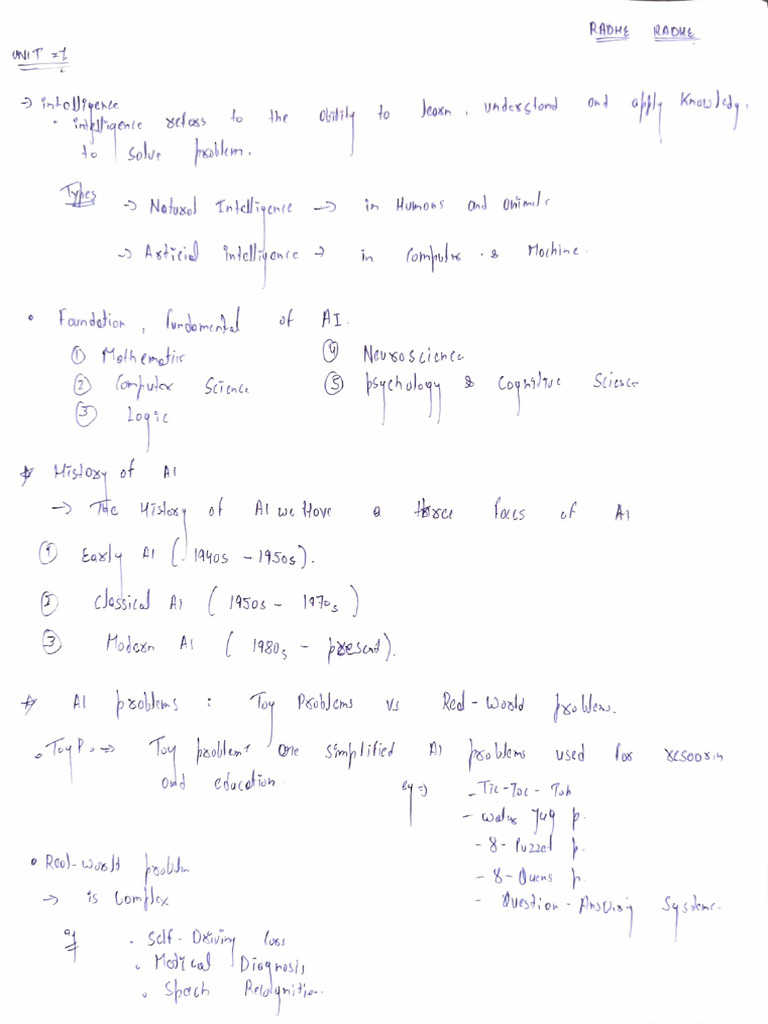 RADHE RADHE
UNIT = 1
→ intelligence
• intelligence refers to the ability to learn, understand and apply knowledg.
to solve problem.
Types → Natural Intelligence → in Humans and animals
→ Articial intelligence → in computer & Machine.
• Foundation, fundamental of AI.
① Mathematic ④ Neuroscience
② Computer Science ⑤ psychology & Cognitive Science
③ Logic
* History of AI
→ The History of AI we Have a three faces of AI
① Early AI (1940s - 1950s).
② Classical AI (1950s - 1970s)
③ Modern AI (1980s - present).
* AI problems : Toy Problems vs Real-World problem.
• Toy P. → Toy problems are simplified AI problems used for
and education. eg ⇒ - Tic-Tac-Toh
- water Jug p.
- 8-Puzzel p.
• Real-world problem - 8-Quens p.
→ is Complex - Question-Answring Systems.
eg • Self-Driving Cars
• Medical Diagnosis
• Spech Recognition.